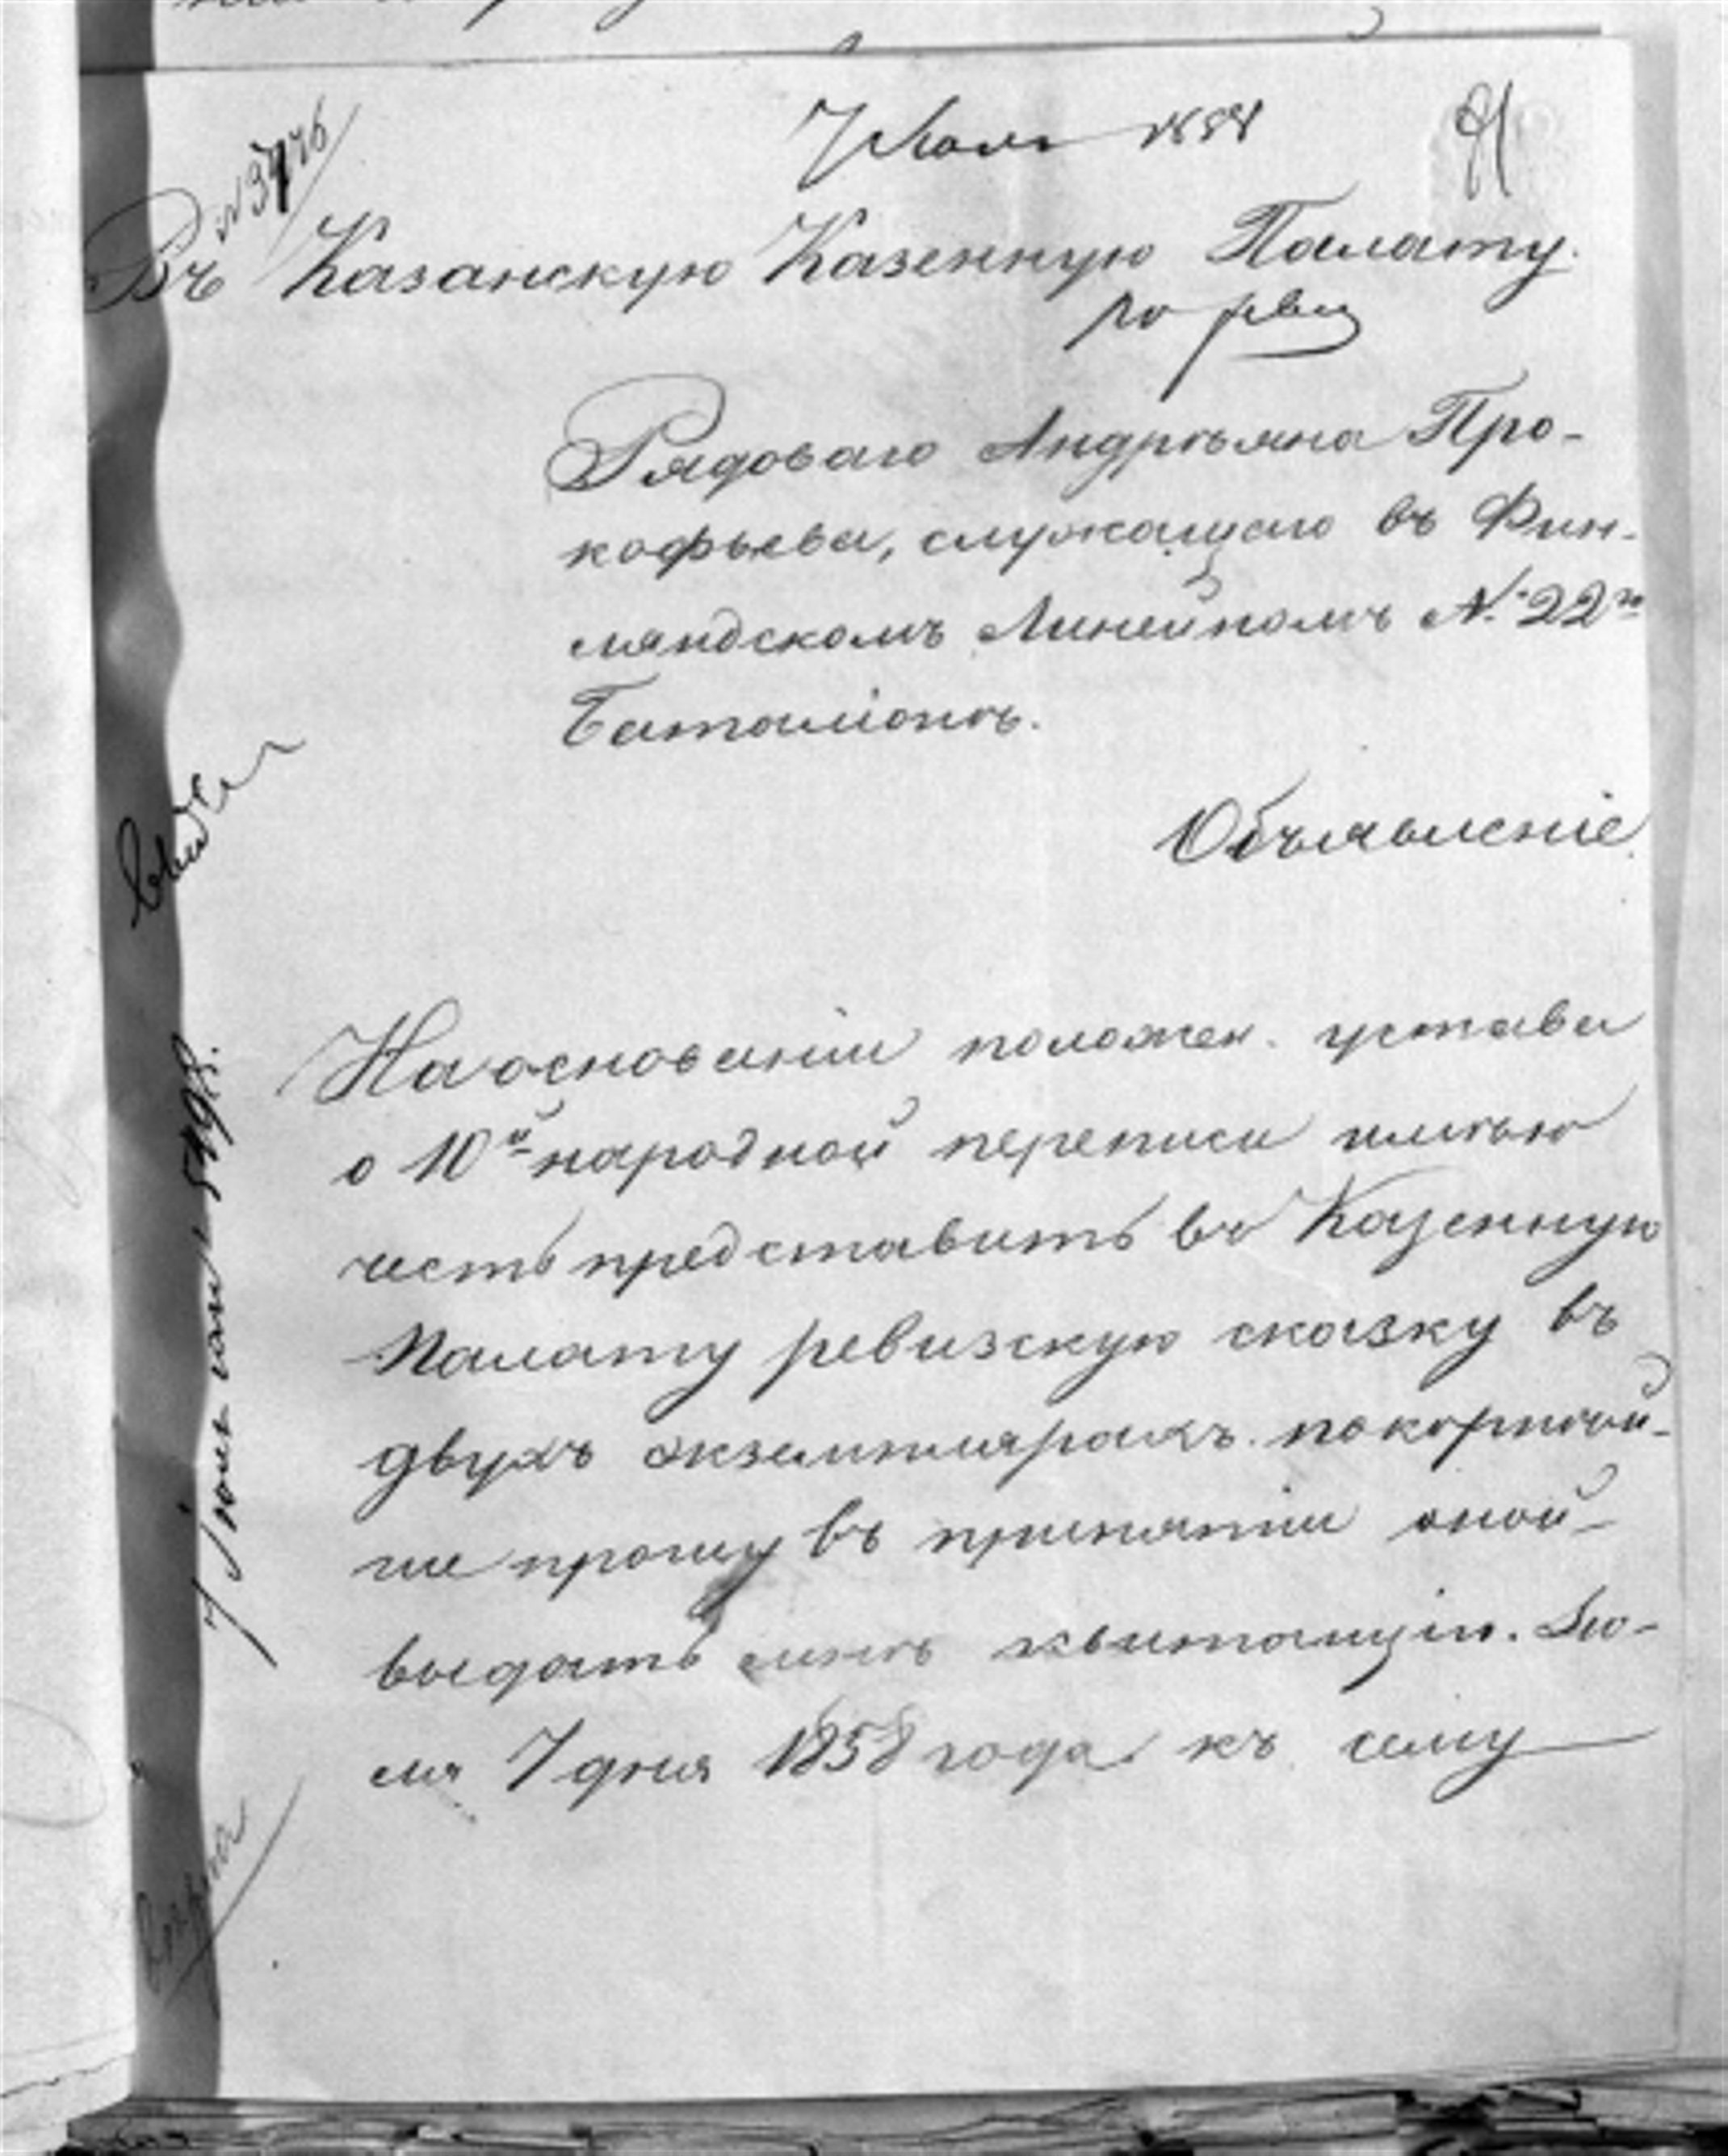 7 Июля 1858
91
№ 37476
Въ Казанскую Казенную Палату.
по рев
Рядоваго Андрѣяна Про-
кофьева, служащаго въ Фин-
ляндскомъ Линейномъ № 22го
Баталіонѣ.
Объявленіе
На основаніи положен. устава
о 10й народной переписи имѣю
честь представить въ Казенную
Палату ревизскую сказку въ
двухъ экземплярахъ. покорнѣй-
ше прошу въ принятіи оной
выдать мнѣ квитанцію. Ію-
ля 7 дня 1858 года къ сему
7 Іюля